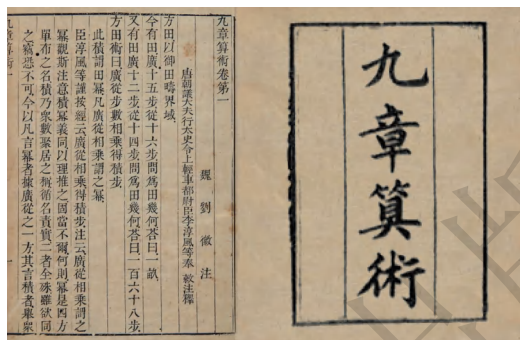 九章算術
九章算術卷第一
魏劉徽注
唐朝議大夫行太史令上輕車都尉臣李淳風等奉敕注釋
方田以御田疇界域
今有田廣十五步從十六步問為田幾何荅曰一畝
又有田廣十二步從十四步問為田幾何荅曰一百六十八步
方田術曰廣從步數相乘得積步
此積謂田冪凡廣從相乘謂之冪
臣淳風等謹按經云廣從相乘得積步注云廣從相乘謂之
冪觀斯注意積冪義同以理推之固當不爾何則冪是四方
單布之名積乃眾數聚居之稱循名責實二者全殊雖欲同
之竊恐不可今以凡言冪者據廣從之一方其言積者舉眾
九章算術一